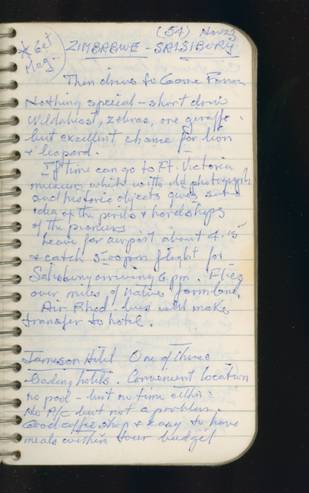 (54) Nov 23
* Get Mag.
ZIMBABWE - SALSIBURY
Then drive to Game Farm
Nothing special - short drive
wildabiest, zebras, one giraffe.
but excellent chance for lion
& leopard.
If time can go to Ft. Victoria
museum which with old photographs
and historic objects gives
idea of the perils & hardships
of the pioneers.
Leave for airport about 4:15
& catch 5:00pm flight for
Salisbury arriving 6 pm. Flies
over miles of native farmland.
Air Rhod. bus will make
transfer to hotel.
Jameson Hotel One of three
leading hotels. Convenient location
no pool - but no time either.
No A/C but not a problem.
Good coffee shop & easy to have
meals within tour budget